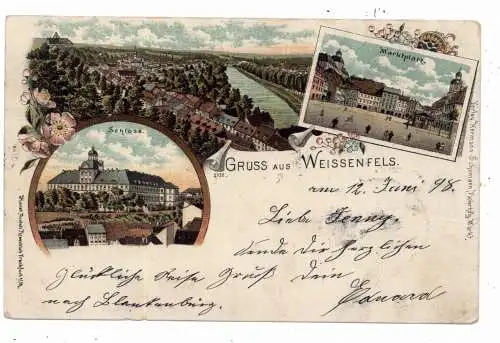 Marktplatz.
Schloss.
GRUSS AUS WEISSENFELS.
am 12. Juni 98.
Liebe Jenny,
Sende dir herzlichen
Glückliche Reise Gruß Dein
nach Blankenburg. Eduard